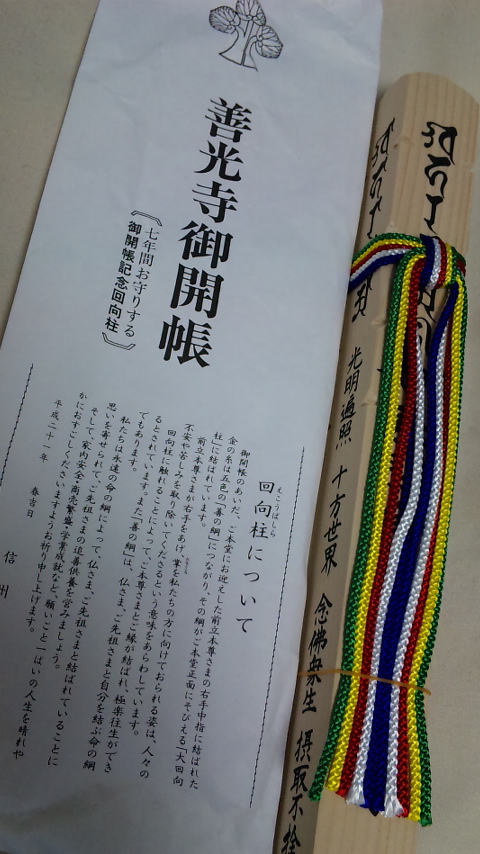 善光寺御開帳
七年間お守りする
御開帳記念回向柱
えこうばしら
回向柱について
御開帳のあいだ、ご本堂にお迎えした前立本尊さまの右手中指に結ばれた
金の糸は五色の「善の綱」につながり、その綱がご本堂正面にそびえる「大回向
柱」に結ばれています。
前立本尊さまが右手をあげ、掌を私たちの方に向けておられる姿は、人々の
不安や苦しみを取り除いてくださるという意味をあらわしています。
回向柱に触れることによって、ご本尊さまとご縁が結ばれ、極楽往生ができ
るとされています。また「善の綱」は、仏さま、ご先祖さまと自分を結ぶ命の綱
でもあります。
私たちは永遠の命の綱によって、仏さま、ご先祖さまと結ばれていることに
思いを寄せられて、ご先祖さまの追善供養を営みましょう。
そして家内安全、商売繁盛、学業成就など、願いごと一ぱいの人生を晴れや
かにおすごしくださいますようお祈り申し上げます。
平成二十一年 春吉日
信州
光明遍照 十方世界 念佛衆生 摂取不捨